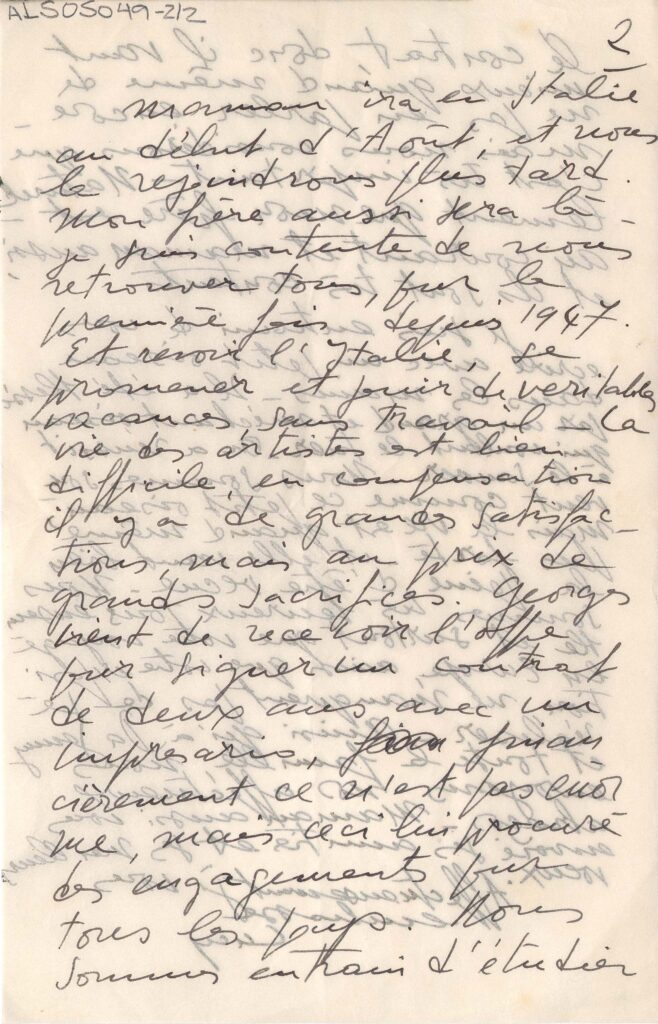 ALS05049-2/2
2
Maman ira en Italie
au début d'Août, et nous
la rejoindrons plus tard.
Mon frère aussi sera là -
je suis contente de nous
retrouver tous, pur la
première fois depuis 1947.
Et revoir l'Italie, se
promener et jouir de veritables
vacances, sans travail - La
vie des artistes est bien
difficile, en compensation
il y a de grandes satisfac-
tions, mais au prix de
grands sacrifices. Georges
vient de recevoir l'offre
pur signer un contrat
de deux ans avec un
impresario, finan
cièrement ce n'est pas énor
me, mais ceci lui procure
des engagements pur
tous les pays. Nous
sommes entrain d'étudier